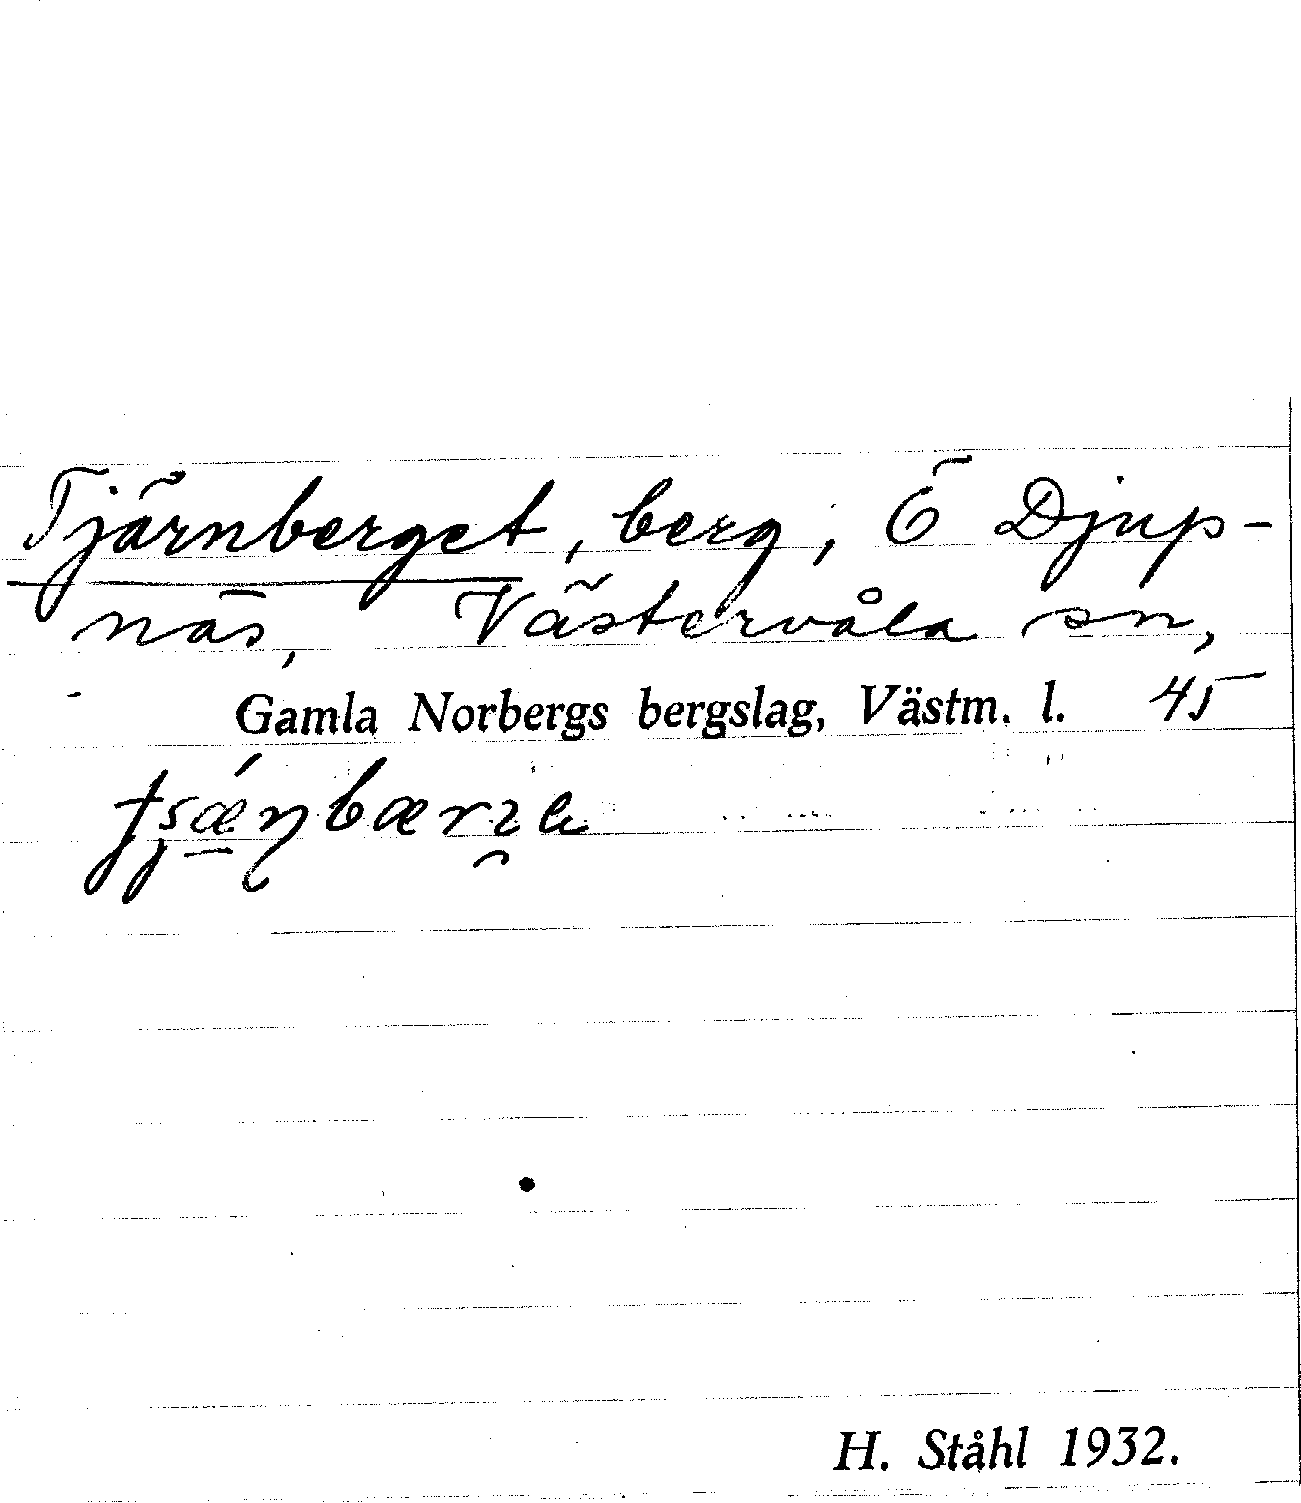 Tjärnberget, berg, Ö Djup-
näs, Västervåla sn,
Gamla Norbergs bergslag, Västm. l. 45
H. Ståhl 1932.